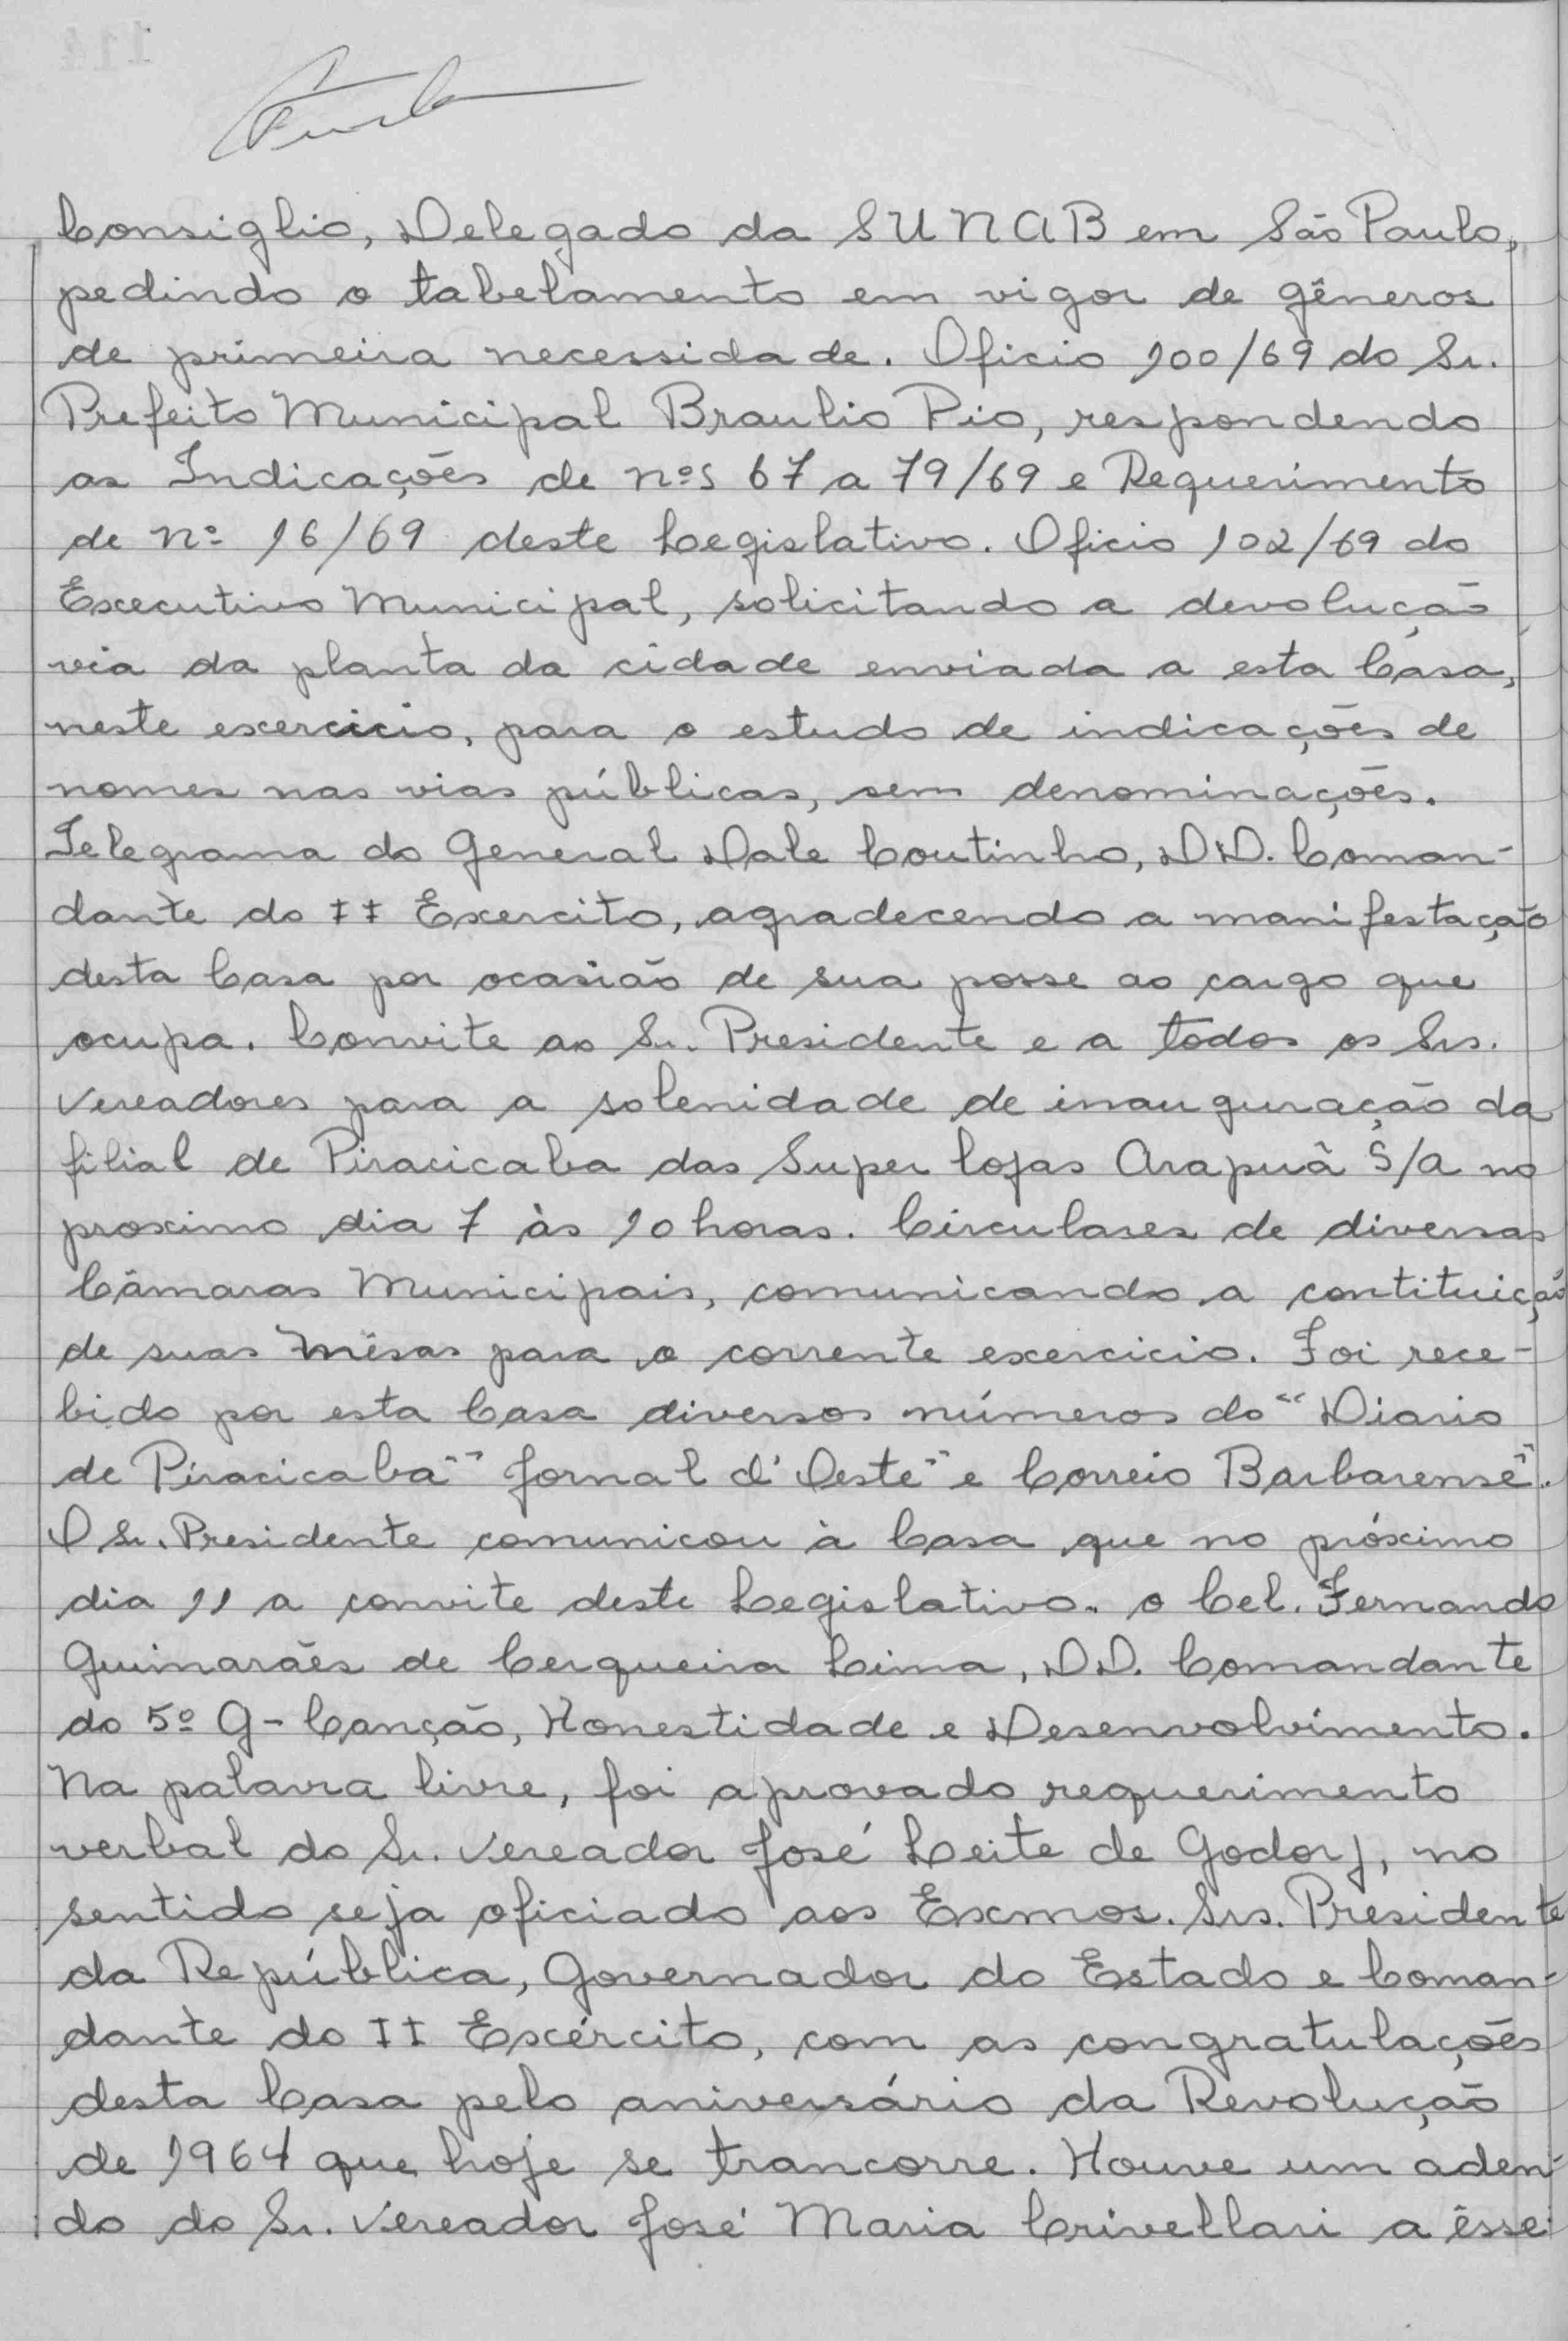 Consiglio, Delegado da SUNAB em São Paulo,
pedindo o tabelamento em vigor de gêneros
de primeira necessidade. Oficio 100/69 do Sr.
Prefeito Municipal Braulio Pio, respondendo
as Indicações de nºs 67 a 79/69 e Requerimento
de nº 16/69 deste Legislativo. Oficio 102/69 do
Executivo Municipal, solicitando a devolução
via da planta da cidade enviada a esta Casa,
neste exercicio, para o estudo de indicações de
nomes nas vias públicas, sem denominações.
Telegrama do General Dale Coutinho, DD. Coman-
dante do II Exercito, agradecendo a manifestação
desta Casa por ocasião de sua posse ao cargo que
ocupa. Convite ao Sr. Presidente e a todos os Srs.
Vereadores para a solenidade de inauguração da
filial de Piracicaba das Super lojas Arapuã S/A no
proximo dia 7 às 10 horas. Circulares de diversas
Câmaras Municipais, comunicando a contituição
de suas mêsas para o corrente exercicio. Foi rece-
bido por esta Casa diversos números do "Diario
de Piracicaba" "Jornal d'Oeste" e Correio Barbarense".
O Sr. Presidente comunicou à Casa que no próximo
dia 11 a convite deste Legislativo. o Cel. Fernando
Guimarães de Cerqueira Lima, DD. Comandante
do 5º G-Canção, Honestidade e Desenvolvimento.
Na palavra livre, foi aprovado requerimento
verbal do Sr. Vereador José Leite de Godoy, no
sentido seja oficiado aos Exmos. Srs. Presidente
da República, Governador do Estado e Coman-
dante do II Exército, com as congratulações
desta Casa pelo aniversário da Revolução
de 1964 que hoje se trancorre. Houve um aden-
do do Sr. Vereador José Maria Crivellari a êsse